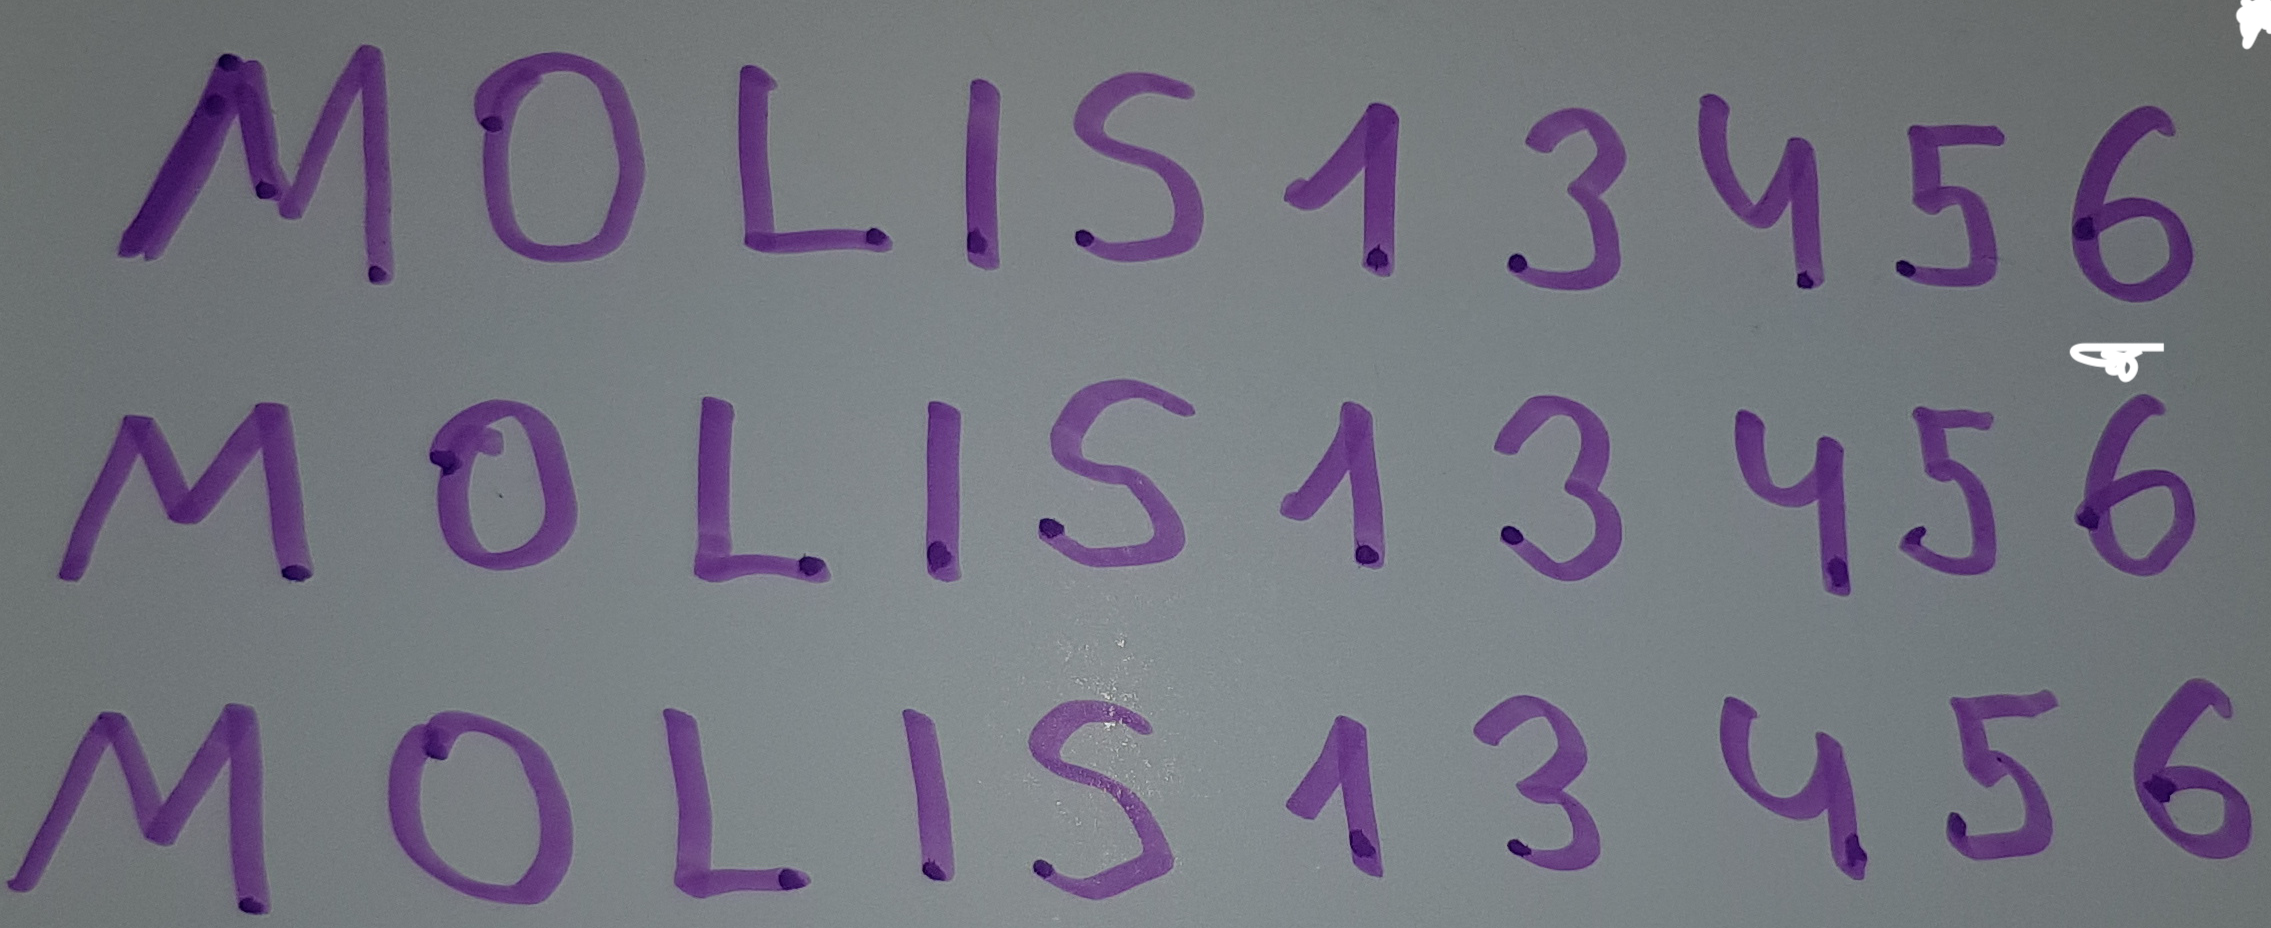 MOLIS13456
MOLIS13456
MOLIS13456